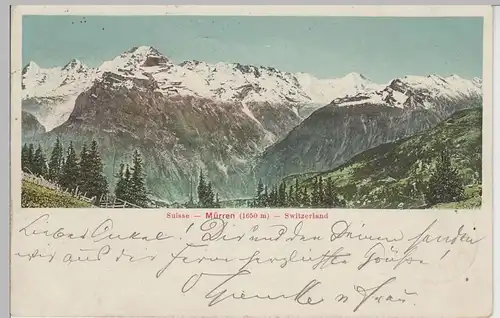 Suisse — Mürren (1650 m) — Switzerland
Lieber Onkel! Dir und den Deinen senden
wir aus der Ferne herzlichste Grüße!
u. Frau.